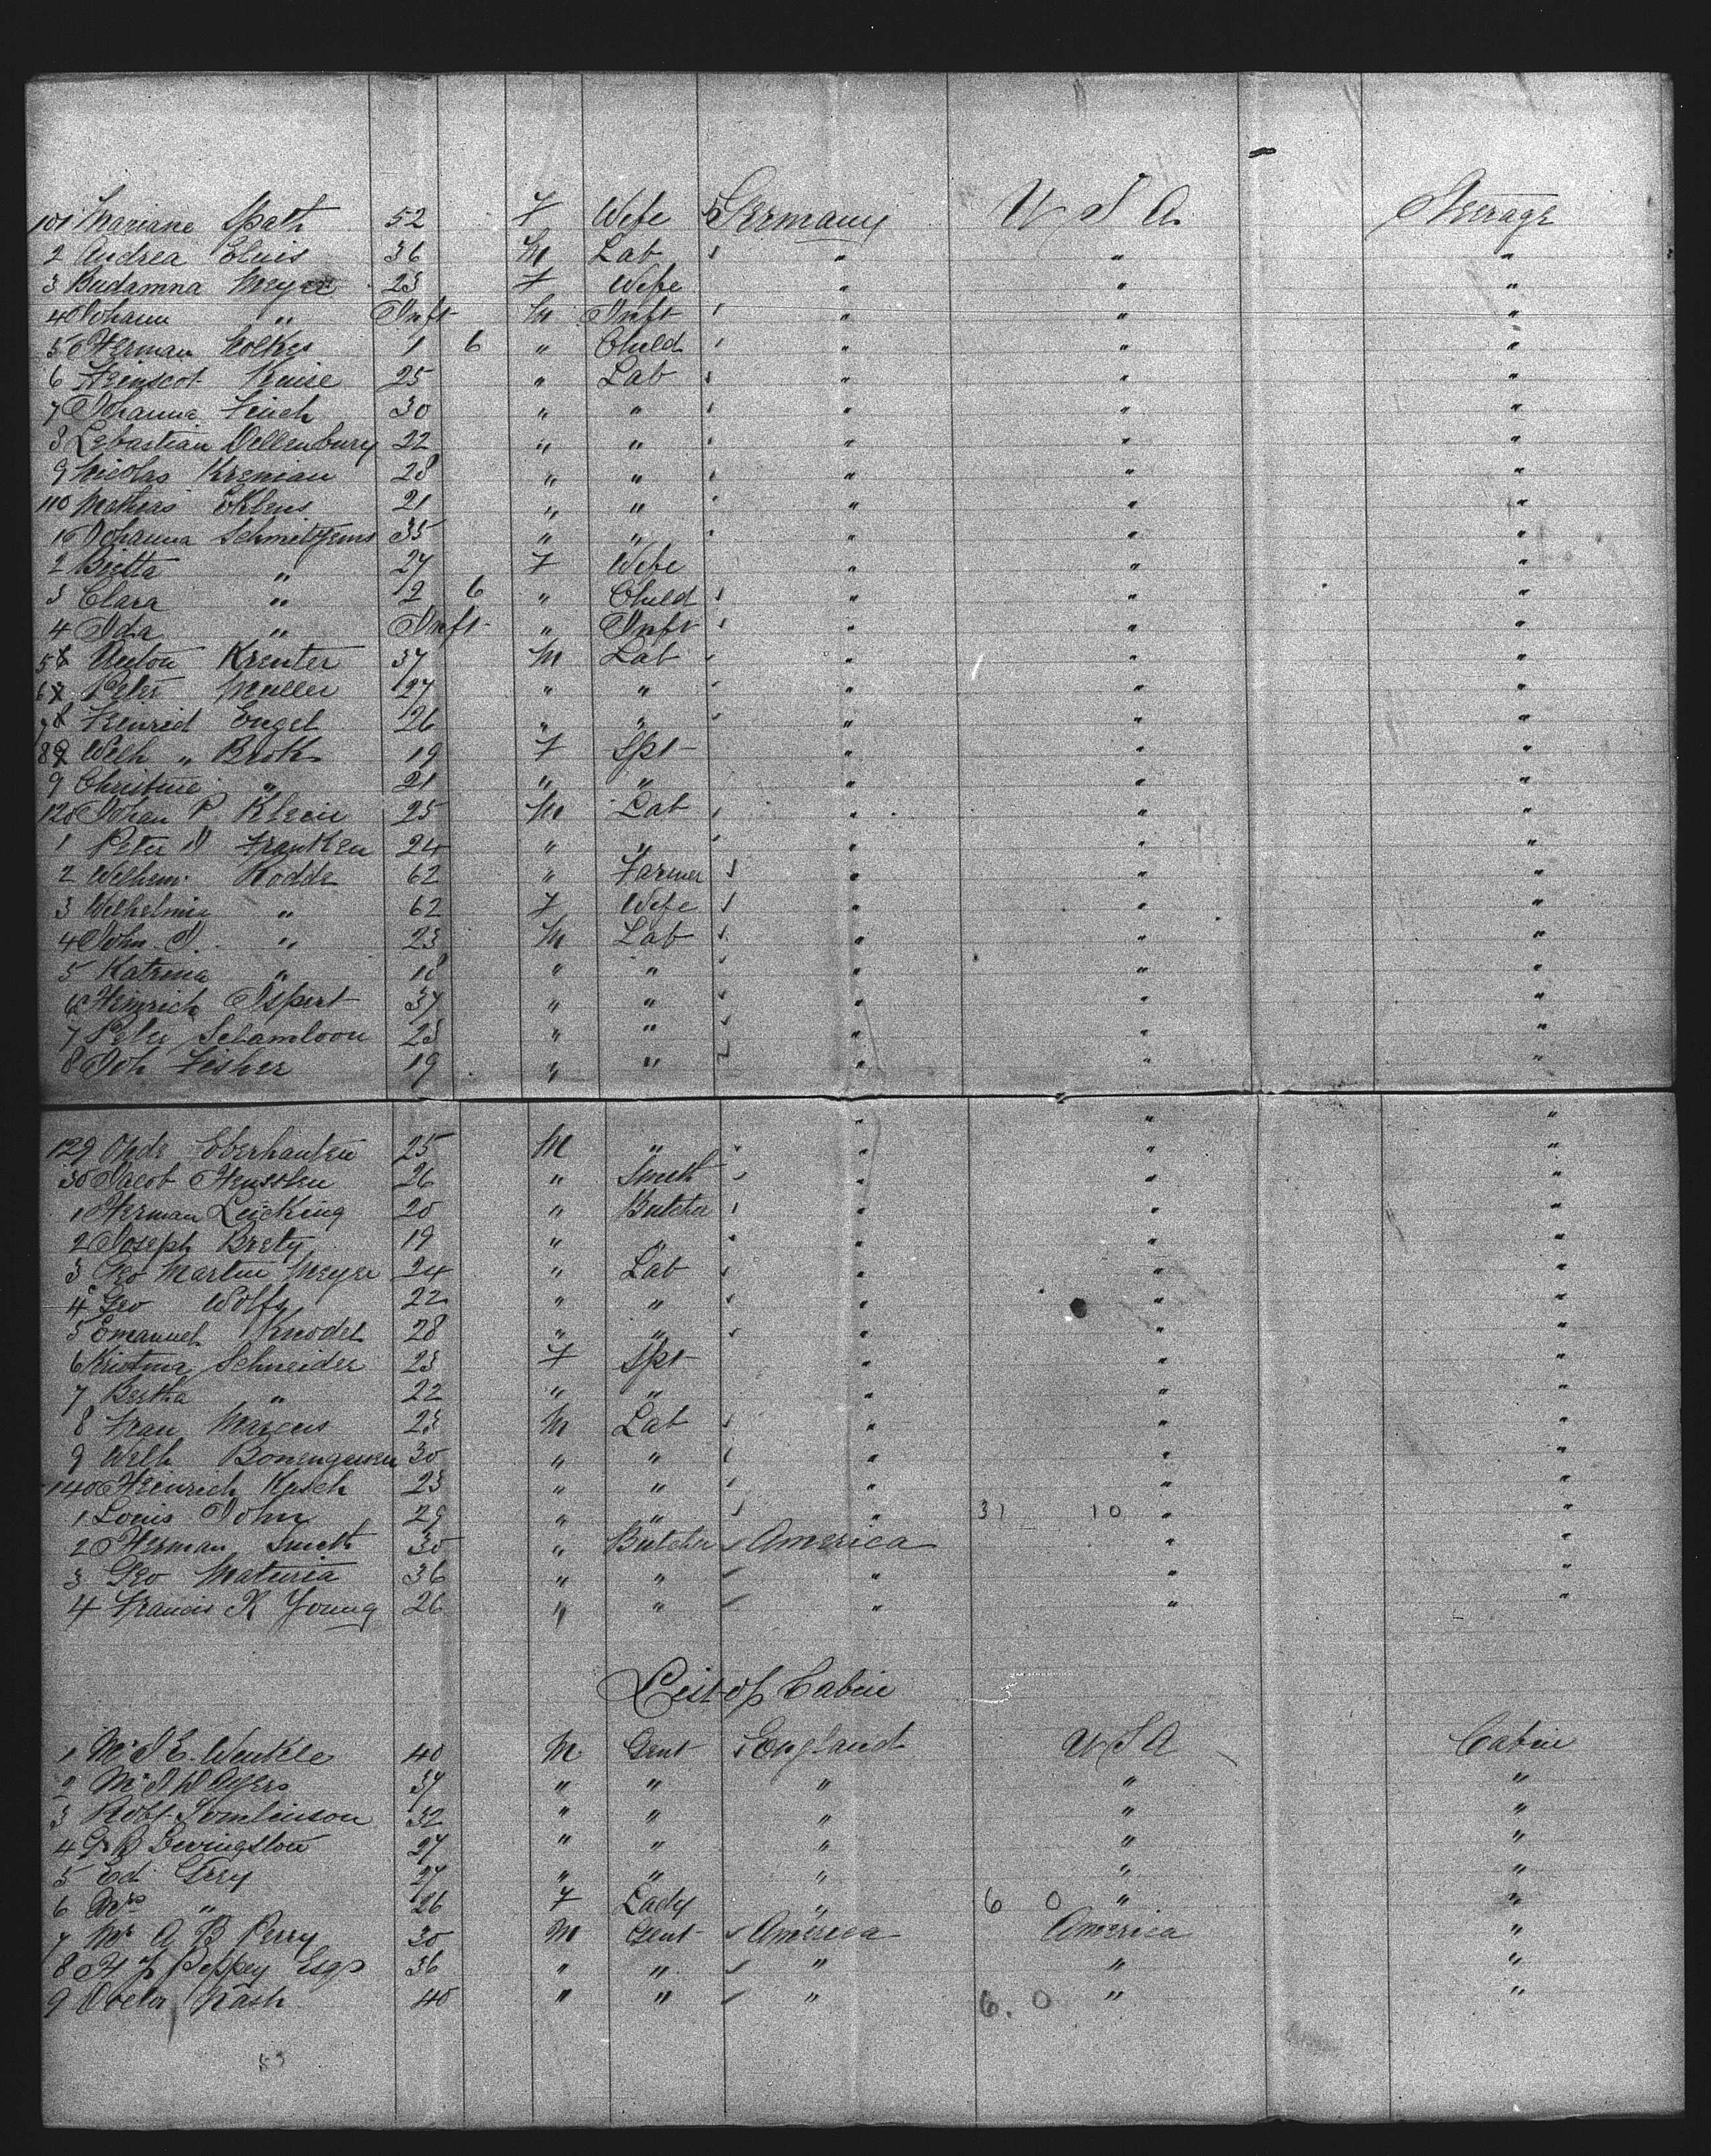 101 Mariane Spath 52 F Wife Germany U S A Steerage
2 Andrea Elnis 36 M Lab " " "
3 Budamna Meyer 23 F Wife " " "
4 Johann " Inft M Inft " " "
5 Herman Holkes 1 6 " Child " " "
6 Heinscot Kruise 25 " Lab " " "
7 Johanna Finch 30 " " " " "
8 Sebastian Dellenbury 22 " " " " "
9 Nicolas Kremian 28 " " " " "
110 Mathias Eklens 21 " " " " "
1 Johanna Schmitzems 35 " " " " "
2 Bietta " 27 F Wife " " "
3 Clara " 2 6 " Child " " "
4 Ida " Inft " Inft " " "
5 Anton Krenter 37 M Lab " " "
6 Peter Muller 27 " " " " "
7 Henrich Engel 26 " " " " "
8 Wilh " Brok 19 F Spt " " "
9 Christine " 21 " " " " "
120 Johan P. Klein 25 M Lab " " "
1 Peter J Franken 24 " " " " "
2 Wilhem Rodde 62 " Farmer " " "
3 Wilhelmia " 62 F Wife " " "
4 John J. " 23 M Lab " " "
5 Katrina " 18 " " " " "
6 Heinrich Ispert 37 " " " " "
7 Peter Selamloon 23 " " " " "
8 Joh Fisher 19 " " " " "
" " "
129 Ohde Eberhauten 25 M " " " "
30 Jacob Henssken 26 " Smith " " "
1 Herman Leicking 20 " Butcher " " "
2 Joseph Brety 19 " " " " "
3 Geo Martin Meyer 24 " Lab " " "
4 Geo Wolfs 22 " " " " "
5 Emanuel Knodel 28 " " " " "
6 Kristina Schneider 23 F Spt " " "
7 Bertha " 22 " " " " "
8 Fran Marcus 23 M Lab " " "
9 Wilh Bonengauen 30 " " " " "
140 Heinrich Kasch 23 " " " " "
1 Louis John 29 " " " 31 10 " "
2 Herman Smith 30 " Butcher America " "
3 Geo Maturia 36 " " " " "
4 Francis K Young 26 " " " " "
List of Cabin
1 Mr J E. Winkle 40 M Gent England U S A Cabin
2 Mr J W Ayers 37 " " " " "
3 Robt Tomlinson 32 " " " " "
4 G B Livingston 27 " " " " "
5 Ed Grey 27 " " " " "
6 Mrs " 26 F Lady " 6 0 " "
7 Mr A B Perry 30 M Gent America America "
8 H J Peppey Esqr 36 " " " " "
9 Doctor Nash 40 " " " 6. 0 " "
53